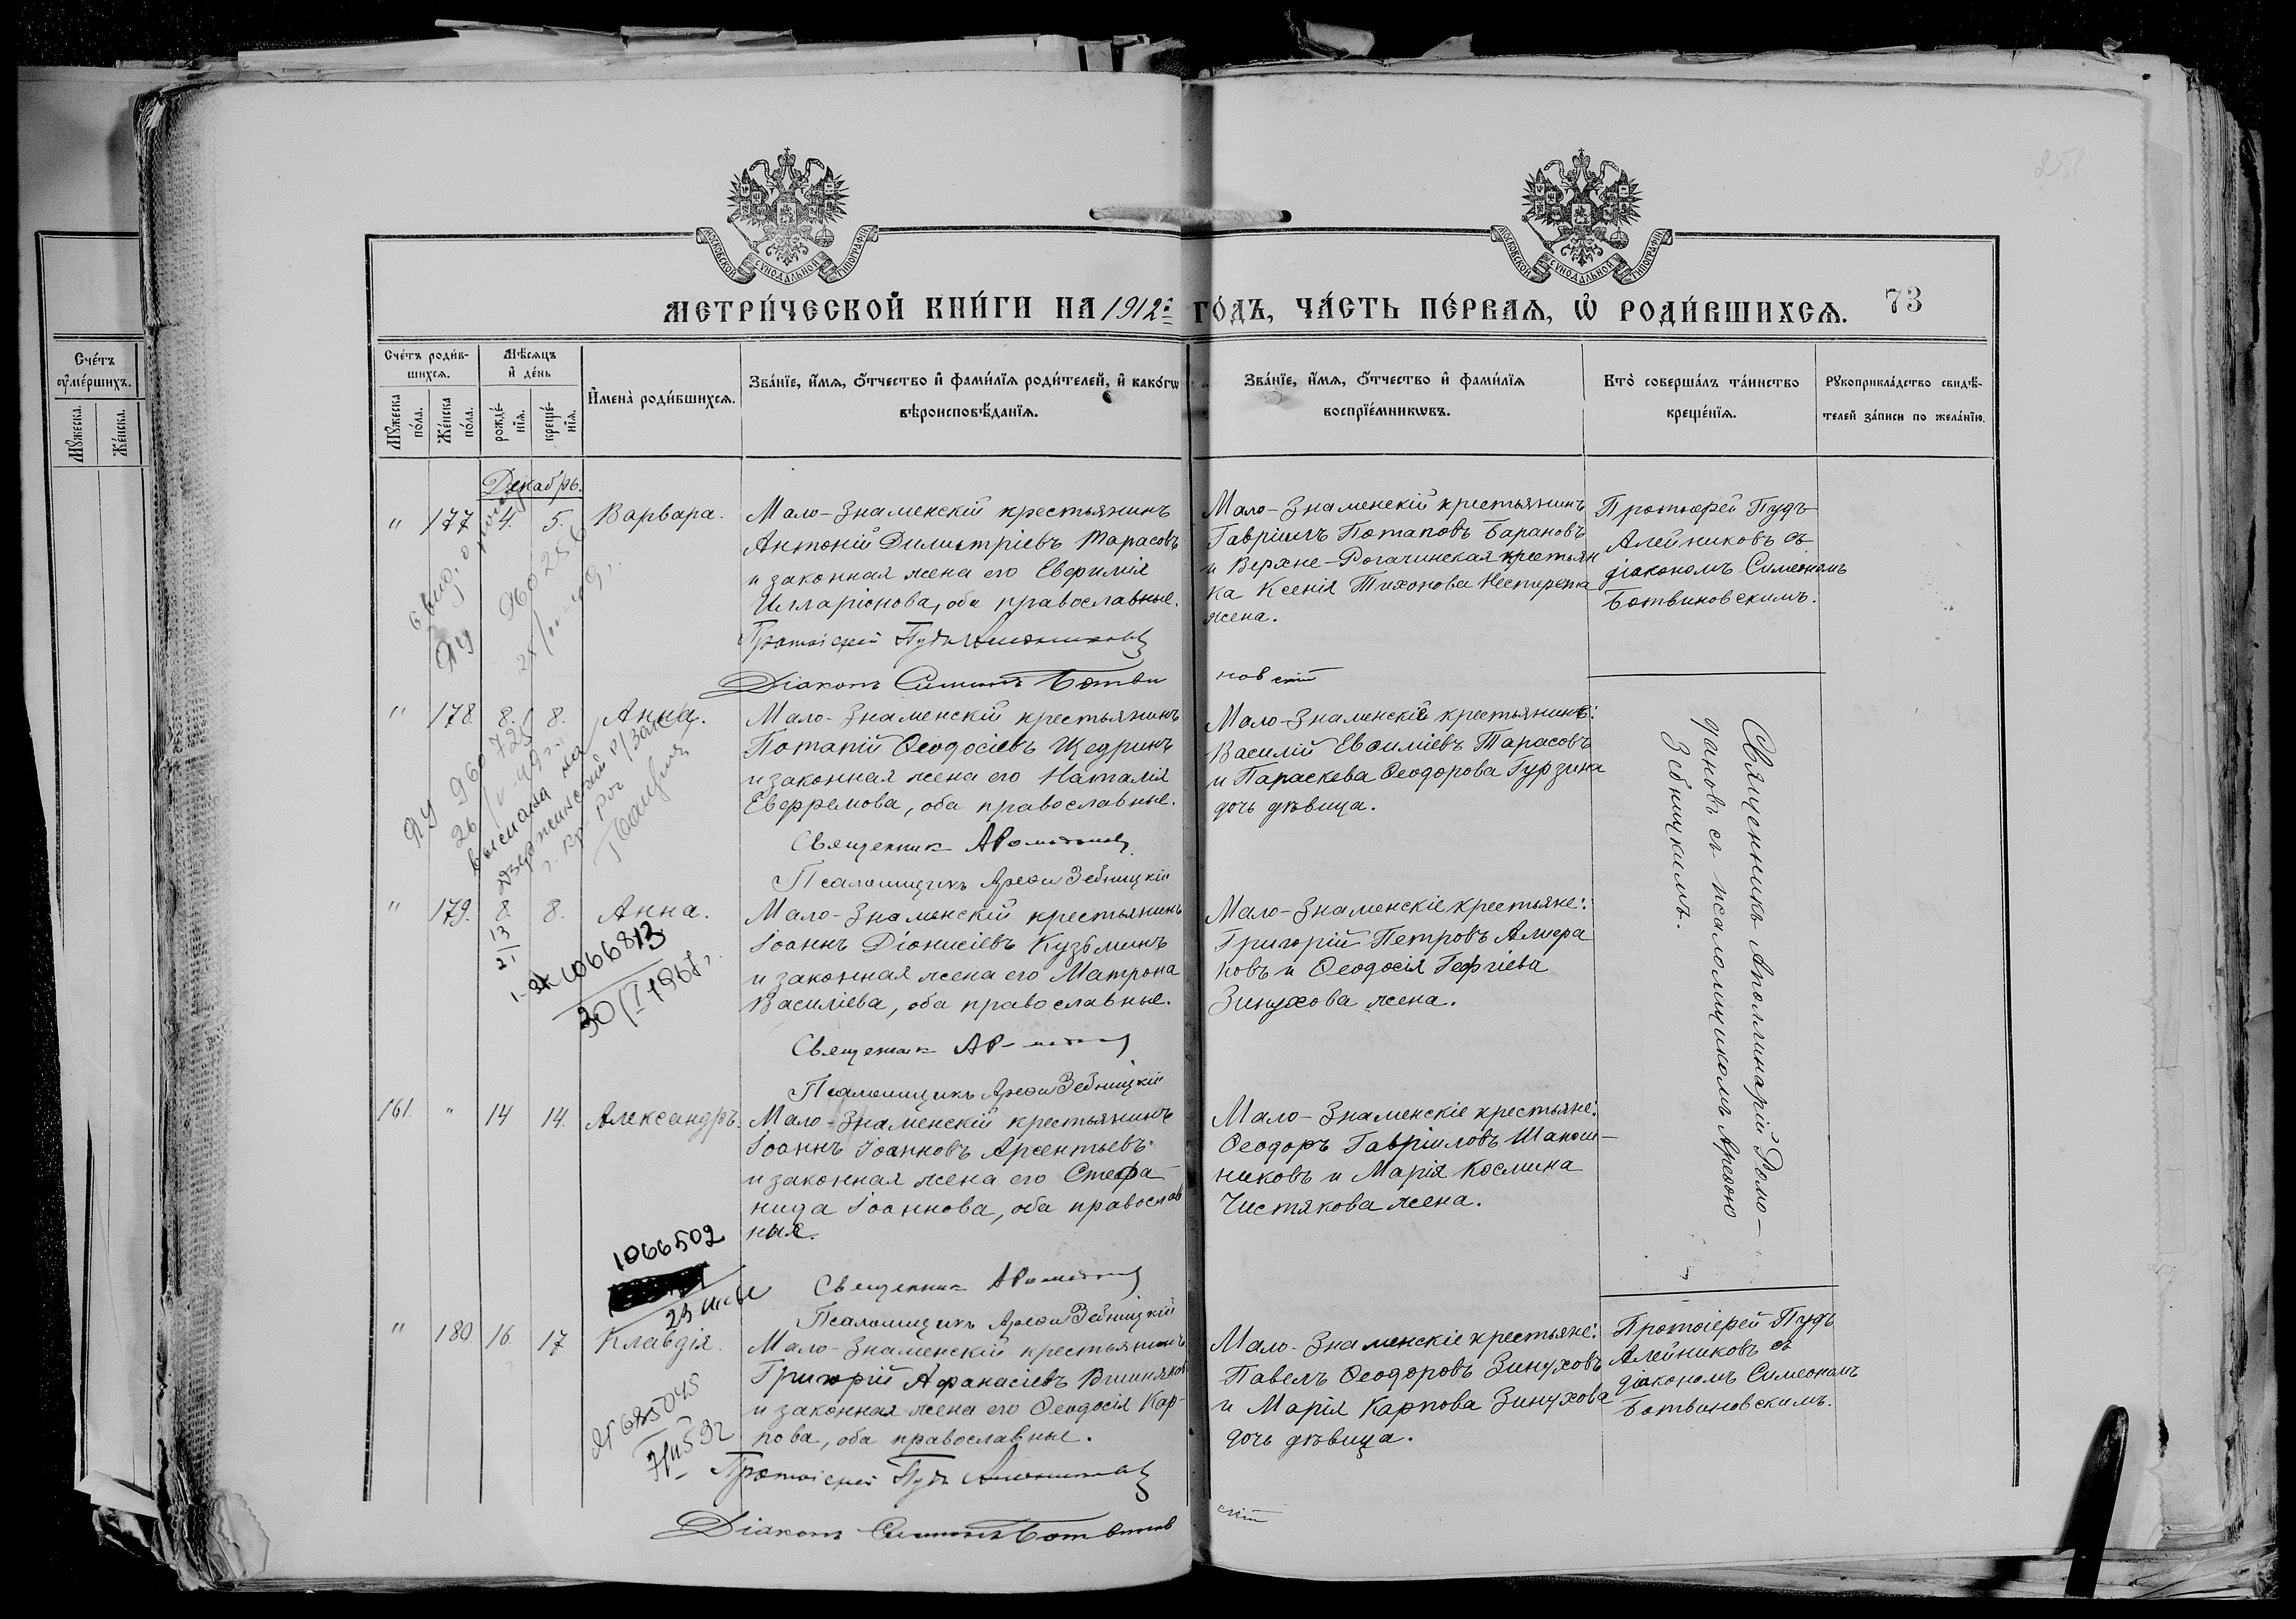 251
МОСКОВСКОЙ СѴНОДАЛЬНОЙ ТИПОГРАФІИ
МОСКОВСКОЙ СѴНОДАЛЬНОЙ ТИПОГРАФІИ
МЕТРИ́ЧЕСКОЙ КНИ́ГИ НА 1912й ГО́ДЪ, ЧА́СТЬ ПЕ́РВАѦ, Ѡ҆ РОДИ́ВШИХСѦ. 73
Сче́тъ ᲂу҆ме́ршихъ.
Мꙋ́жеска.
Же́нска.
Сче́тъ роди́вшихсѧ.
Мꙋ́жеска по́ла.
Же́нска по́ла.
Мѣ́сѧцъ и҆ де́нь
рожде́нїѧ.
креще́нїѧ.
И҆мена̀ роди́вшихсѧ.
Зва́нїе, и҆́мѧ, ѻ҆́тчество и҆ фами́лїѧ роди́телей, и҆ како́гѡ
вѣроисповѣ́данїѧ.
Зва́нїе, и҆́мѧ, ѻ҆́тчество и҆ фами́лїѧ
воспрїе́мникѡвъ.
Кто̀ соверша́лъ та́инство
креще́нїѧ.
Рꙋкоприкла́дство свидѣ́-
телей за́писи по жела́нїю.
Декабрь.
" 177 4. 5. Варвара.
Мало-Знаменскій крестьянинъ
Антоній Димитріевъ Тарасовъ
и законная жена его Евфимія
Илларіонова, оба православные.
Протоіерей Пудъ Алейниковъ
Діаконъ Симеонъ Ботви
новскій
Мало-Знаменскій крестьянинъ
Гавріилъ Потаповъ Барановъ
и Верхне-Рогачинская крестьян
ка Ксенія Тихонова Нестеренка
жена.
Протоіерей Пудъ
Алейниковъ съ
діакономъ Симеономъ
Ботвиновскимъ.
" 178. 8. 8. Анна.
Мало-Знаменскій крестьянинъ
Потапій Ѳеодосіевъ Щедринъ
и законная жена его Наталія
Евфремова, оба православные.
Священникъ А Ромодановъ
Псаломщикъ Ареѳа Зебницкій
Мало-Знаменскіе крестьяне:
Василій Евѳиміевъ Тарасовъ
и Параскева Ѳеодорова Гурзина
дочь дѣвица.
Священникъ Аполлинарій Ромо-
дановъ съ псаломщикомъ Ареѳою
Зебницкимъ.
" 179. 8. 8. Анна.
1066813
30/I 1968г.
Мало-Знаменскій крестьянинъ
Іоаннъ Діонисіевъ Кузьминъ
и законная жена его Матрона
Василіева, оба православные.
Священникъ А Ромодановъ
Псаломщикъ Ареѳа Зебницкій
Мало-Знаменскіе крестьяне:
Григорій Петровъ Алфера
ковъ и Ѳеодосія Георгіева
Зинухова жена.
161. " 14 14. Александръ.
Мало-Знаменскій крестьянинъ
Іоаннъ Іоанновъ Арсентьевъ
и законная жена его Стефа-
нида Іоаннова, оба православ
ныя.
Священникъ А Ромодановъ
Псаломщикъ Ареѳа Зебницкій
Мало-Знаменскіе крестьяне:
Ѳеодоръ Гавріиловъ Шапош-
никовъ и Марія Космина
Чистякова жена.
1066502
" 180. 16. 17 Клавдія.
Мало-Знаменскій крестьянинъ
Григорій Аѳанасіевъ Вишняков
и законная жена его Ѳеодосія Кар-
пова, оба православные.
Протоіерей Пудъ Алейниковъ
Діаконъ Симеонъ Ботвинов
скій
Мало-Знаменскіе крестьяне:
Павелъ Ѳеодоровъ Зинуховъ
и Марія Карпова Зинухова
дочь дѣвица.
Протоіерей Пудъ
Алейниковъ съ
діакономъ Симеономъ
Ботвиновскимъ.